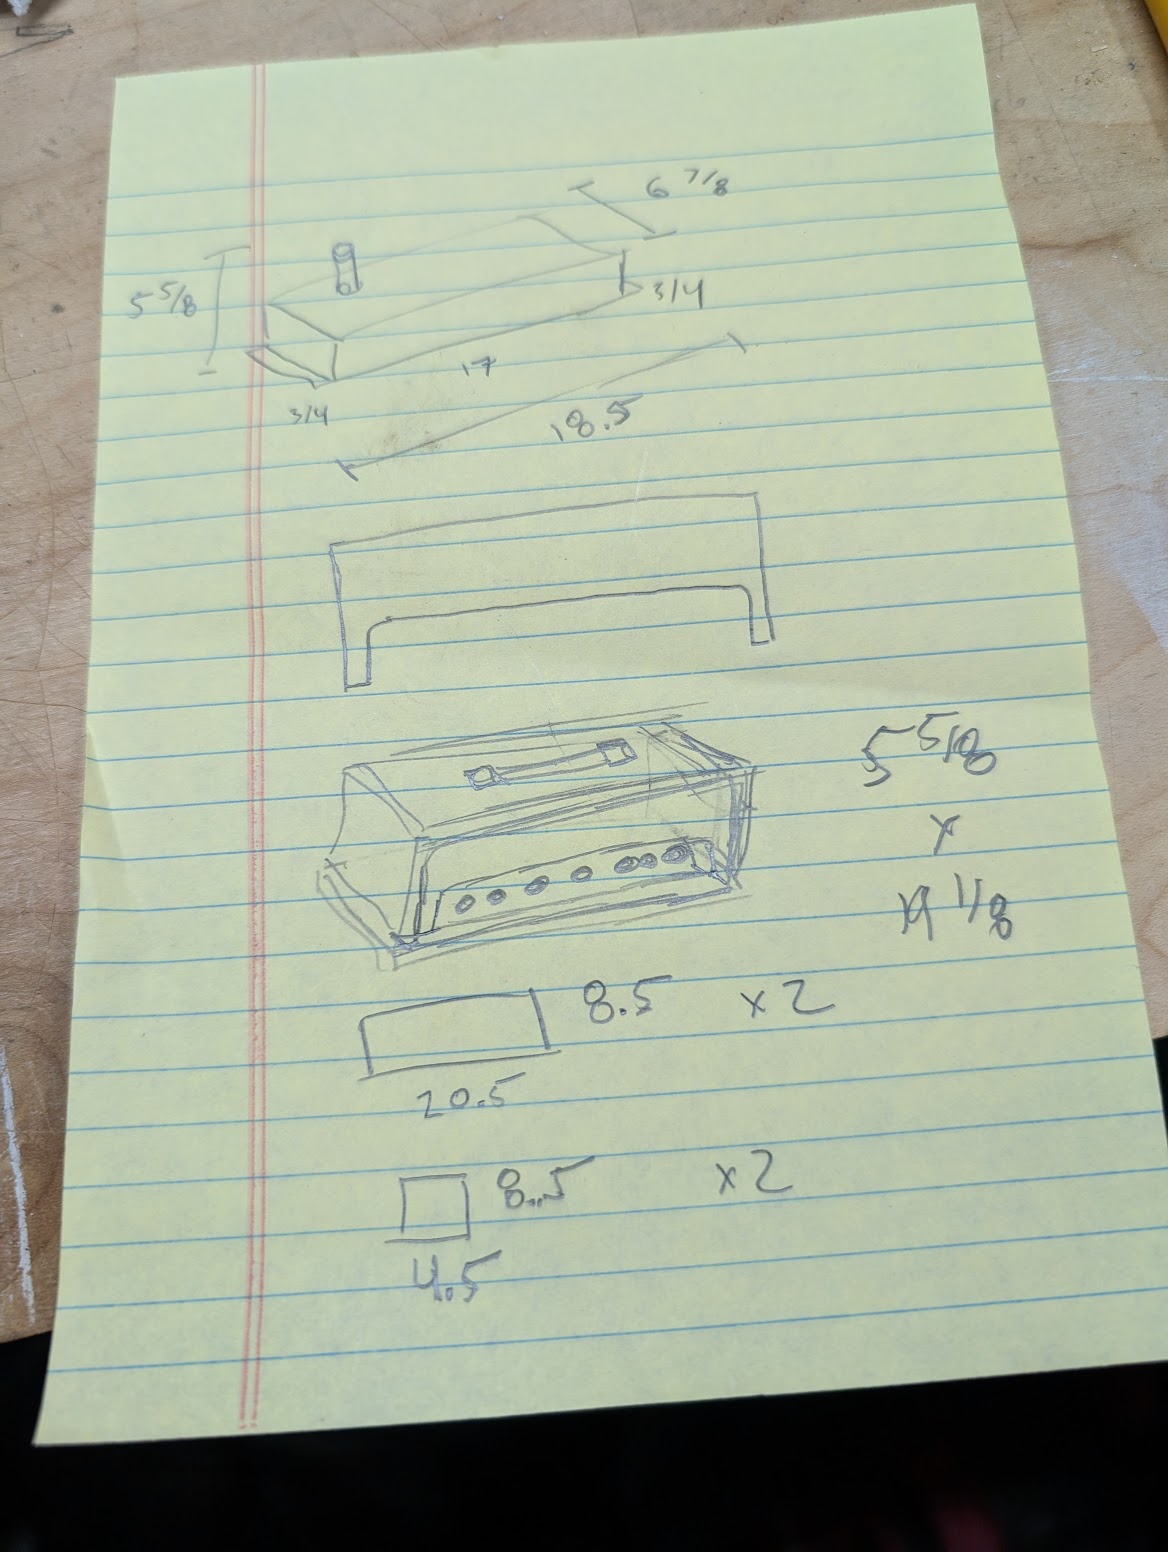 6 7/8
5 5/8
3/4
17
3/4
18.5
5 5/8
x
1/8
8.5 x2
20.5
8.5 x2
4.5